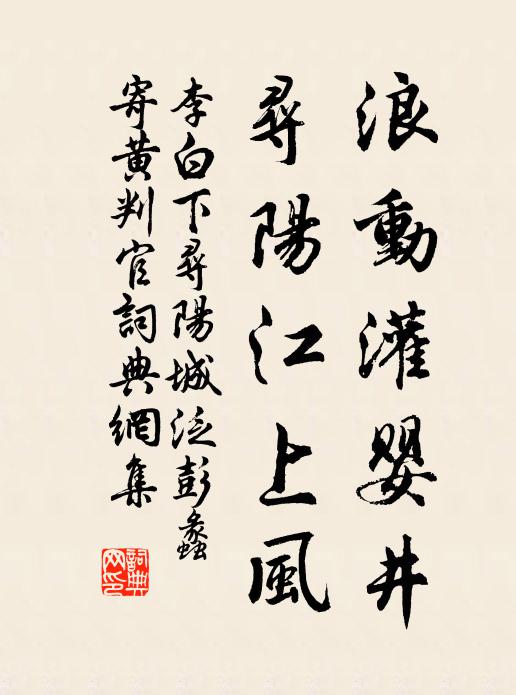 浪動灌嬰井
尋陽江上風
李白下尋陽城泛彭蠡
寄黃判官詞典網集
詞典网印